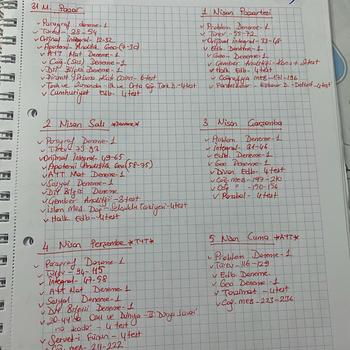 31 M. Pazar
✓ Paragraf deneme-1
✓ Türev - 28-54
✓ Orijinal İntegral-
✓ Apotemi Analitik Geo (7-)
✓ AYT Mat Deneme-1
✓ Coğ. (Sos) Deneme-1
✓ Dil Bilgisi Deneme-1
✓ 6test
✓ Türk ve İlk ve Orta Türk D.-4test
✓ Cumhuriyet Edb. 4test
1 Nisan Pazartesi
✓ Problem Deneme-1
✓ Türev-55-72
✓ Orijinal İntegral-33-48
✓ Edb. Deneme-1
✓ Geo-Deneme-1
✓ Çember Analitiği
✓ Halk Edb-4test
✓ Coğrafya MEB-
✓ Parabol - 4test
2 Nisan Salı
✓ Paragraf Deneme-1
✓ Türev 73-93
✓ Orijinal İntegral 49-65
✓ Apotemi Analitik Geo (58-75)
✓ AYT Mat Deneme-1
✓ Sosyal Deneme-1
✓ Dil Bilgisi Deneme
✓ Çember Analitiği-3test
✓ İslam Med. Doğ- Türkiyesi-4test
✓ Halk Edb-4test
3 Nisan Çarşamba
✓ Problem Deneme-1
✓ İntegral-
✓ Edb. Deneme-1
✓ Geo Deneme-1
✓ Divan Edb-4test
✓ Coğ-meb-197-210
✓ Coğ " -170-176
✓ Parabol - 4test
4 Nisan Perşembe *TYT*
✓ Paragraf Deneme-1
✓ Türev-94-115
✓ İntegral-47-58
✓ AYT Mat Deneme-1
✓ Sosyal Deneme-1
✓ Dil Bilgisi Deneme-1
✓ 20.yy'da Osm ve Dünya- II. Dünya Savaşı
na kadar - 4test
✓ Servet-i Fünun - 4test
✓ Coğ. meb 211-222
5 Nisan Cuma *AYT*
✓ Problem Deneme-1
✓ Türev-116-129
✓ Edb. Deneme
✓ Geo Deneme-1
✓ Tanzimat - 4test
✓ Coğ-meb-223-236